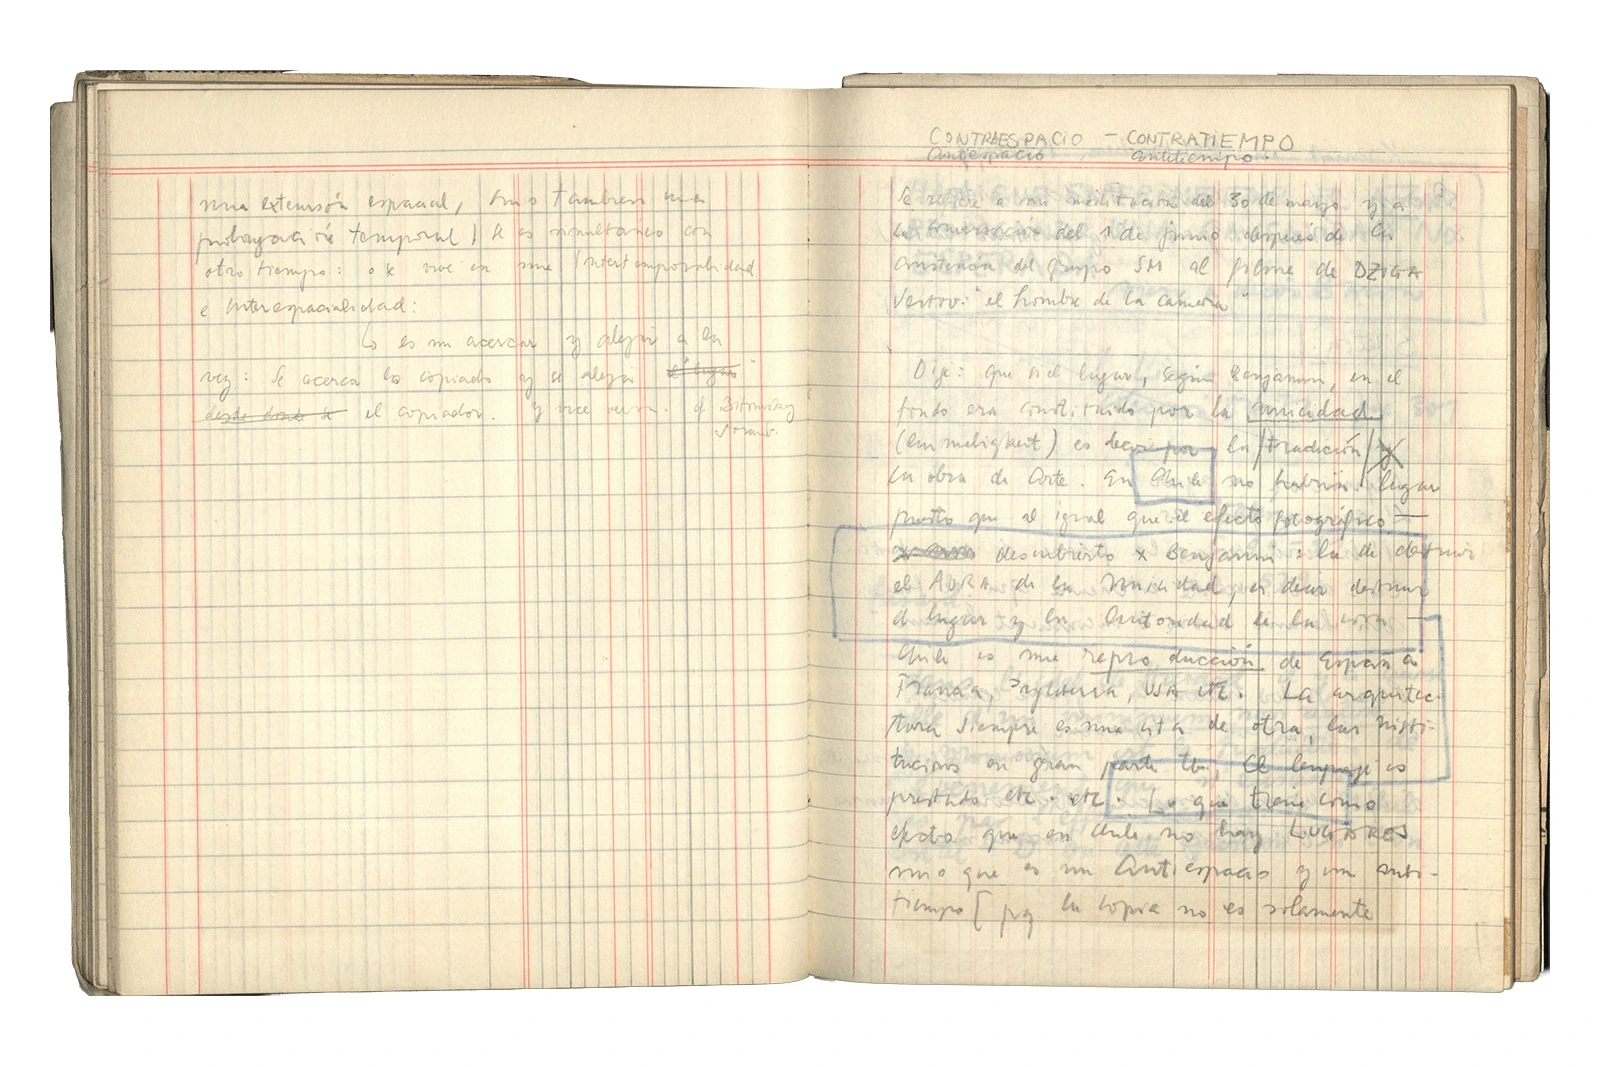 una extensión espacial, sino también una
prolongación temporal) se es simultáneo con
otro tiempo: o se vive en una intertemporalidad
e Interespacialidad:
es un acercar y alejar a la
vez: Se acerca lo copiado y se aleja el "lugar"
desde donde se el copiador. y vice versa.
CONTRAESPACIO – CONTRATIEMPO
antiespacio antitiempo.
Se refiere a mi meditación del 30 de mayo y a
la conversación del 1 de junio después de la
asistencia del grupo SM al filme de DZIGA
Vertov: "el hombre de la cámera"
Dije: que si el lugar, según Benjamin, en el
fondo era constituido por la unicidad
(Einmaligkeit) es decir por la /tradición/ y
la obra de Arte. En Chile no habría lugar
puesto que al igual que el efecto fotográfico —
descubierto x Benjamin: la de destruir
el AURA de la Unicidad, es decir destruir
el lugar y la Autoridad de la cosa —
Chile es una reproducción de España
Francia, Inglaterra, USA etc. La arquitec-
tura siempre es una cita de otra, las insti-
tuciones en gran parte tb., el lenguaje es
prestado etc. etc. Lo que tiene como
efecto que en Chile no hay LUGARES
sino que es un Antiespacio y un anti-
tiempo [pq la copia no es solamente